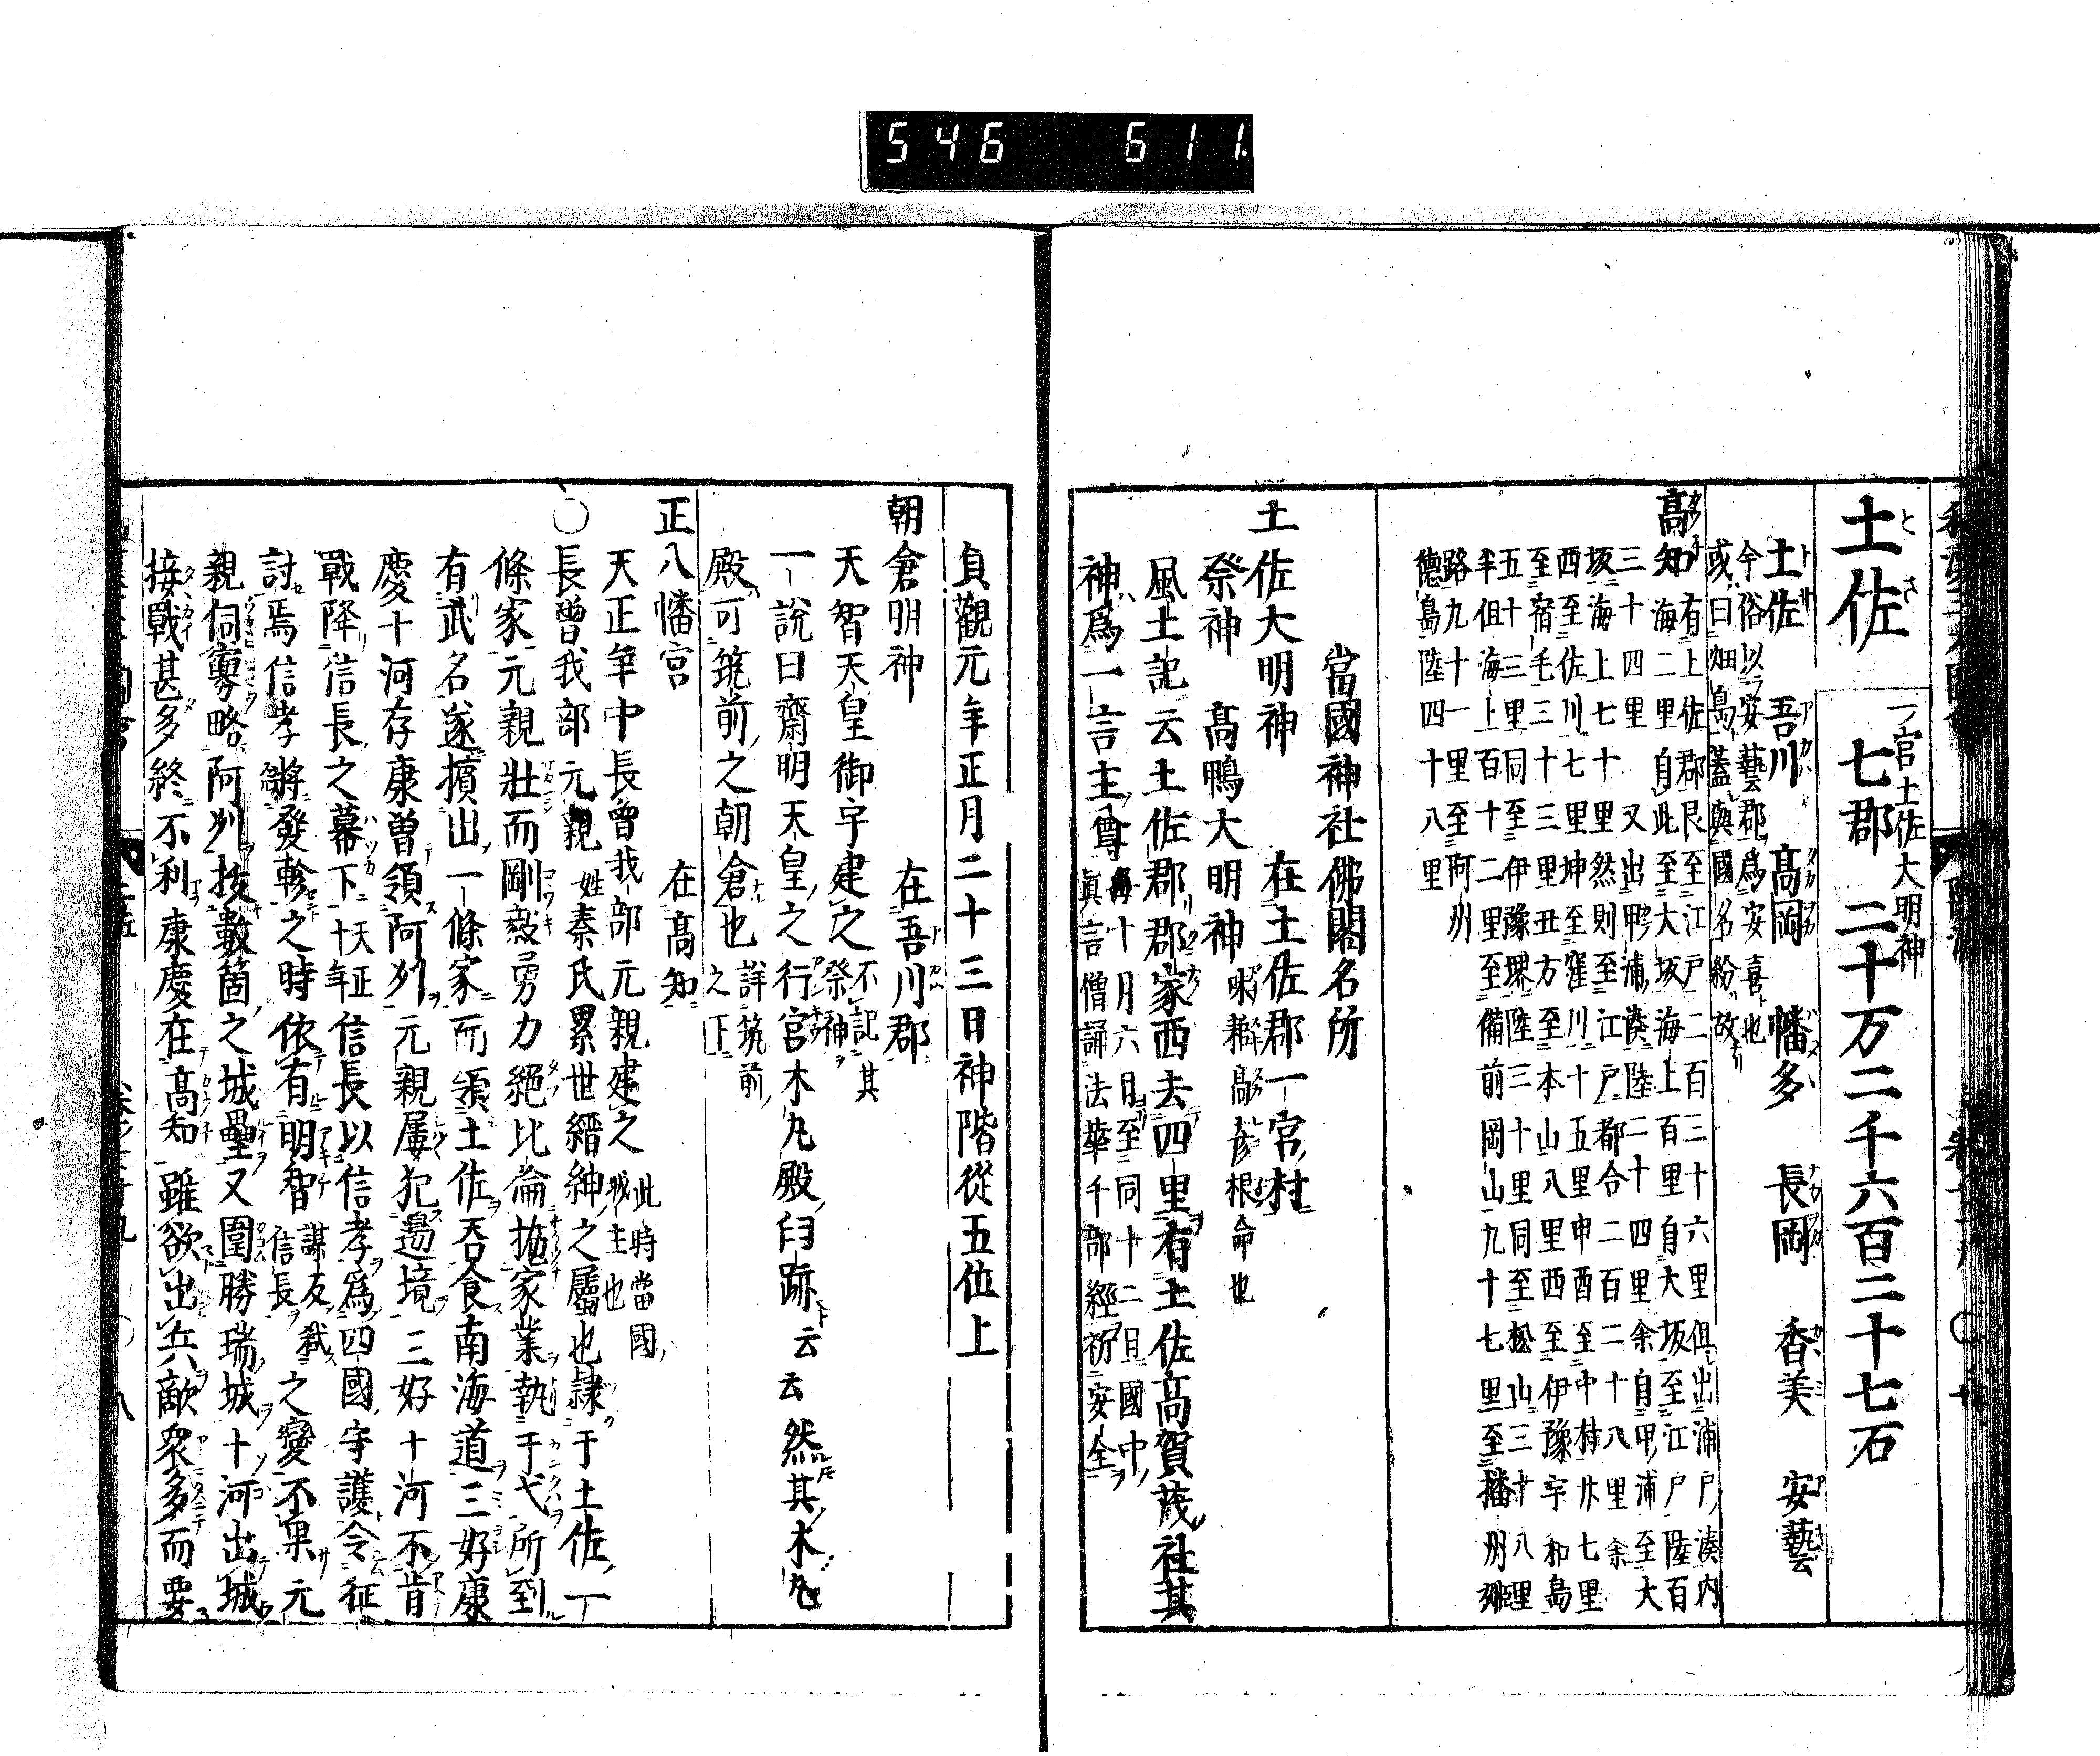 546 611
土佐 一宮土佐大明神 七郡 二十万二千六百二十七石
土佐 吾川 高岡 幡多 長岡 香美 安藝
今俗以安藝郡爲安喜也
或曰畑島蓋與國名紛故
高知 有土佐郡艮至江戸二百三十六里但出浦戸湊内
海二里自此至大坂海上百里自大坂至江戸陸百
三十四里 又出甲浦湊陸二十四里余自甲浦至大
坂海上七十里然則至江戸都合二百二十八里余
西至佐川七里坤至窪川十五里申酉至中村廿七里
至宿毛三十三里丑方至本山八里西至伊豫宇和島
五十三里同至伊豫堺陸三十里同至松山三十八里
半但海上百十二里至備前岡山九十七里至播州姫
路九十一里至阿州
德島陸四十八里
當國神社佛閣名所
土佐大明神 在土佐郡一宮村
祭神 高鴨大明神 味耜高彦根命也
風土記云土佐郡郡家西去四里有土佐高賀茂社其
神爲一言主尊 每十月六日至同十二日國中
眞言僧誦法華千部經祈安全
貞觀元年正月二十三日神階從五位上
朝倉明神 在吾川郡
天智天皇御宇建之 不記其
祭神
一説曰齋明天皇之行宮木丸殿旧跡云云然其木丸
殿可筑前之朝倉也 詳筑前
之下
正八幡宮 在高知
天正年中長曾我部元親建之 此時當國
城主也
○長曾我部元親 姓秦氏累世縉紳之屬也隷于土佐一
條家元親壯而剛毅勇力絕比倫抛家業執于弋所到
有武名遂擯出一條家而領土佐吞食南海道三好康
慶十河存康曽領阿州元親屢犯邊境三好十河不肯
戰降信長之幕下 天正
十年 信長以信孝爲四國守護令征
討焉信孝將發軫之時依有明智 謀反弑
信長 之變不果元
親伺寡略阿州拔數箇之城壘又圍勝瑞城十河出城
接戰甚多終不利康慶在高知雖欲出兵敵衆多而要